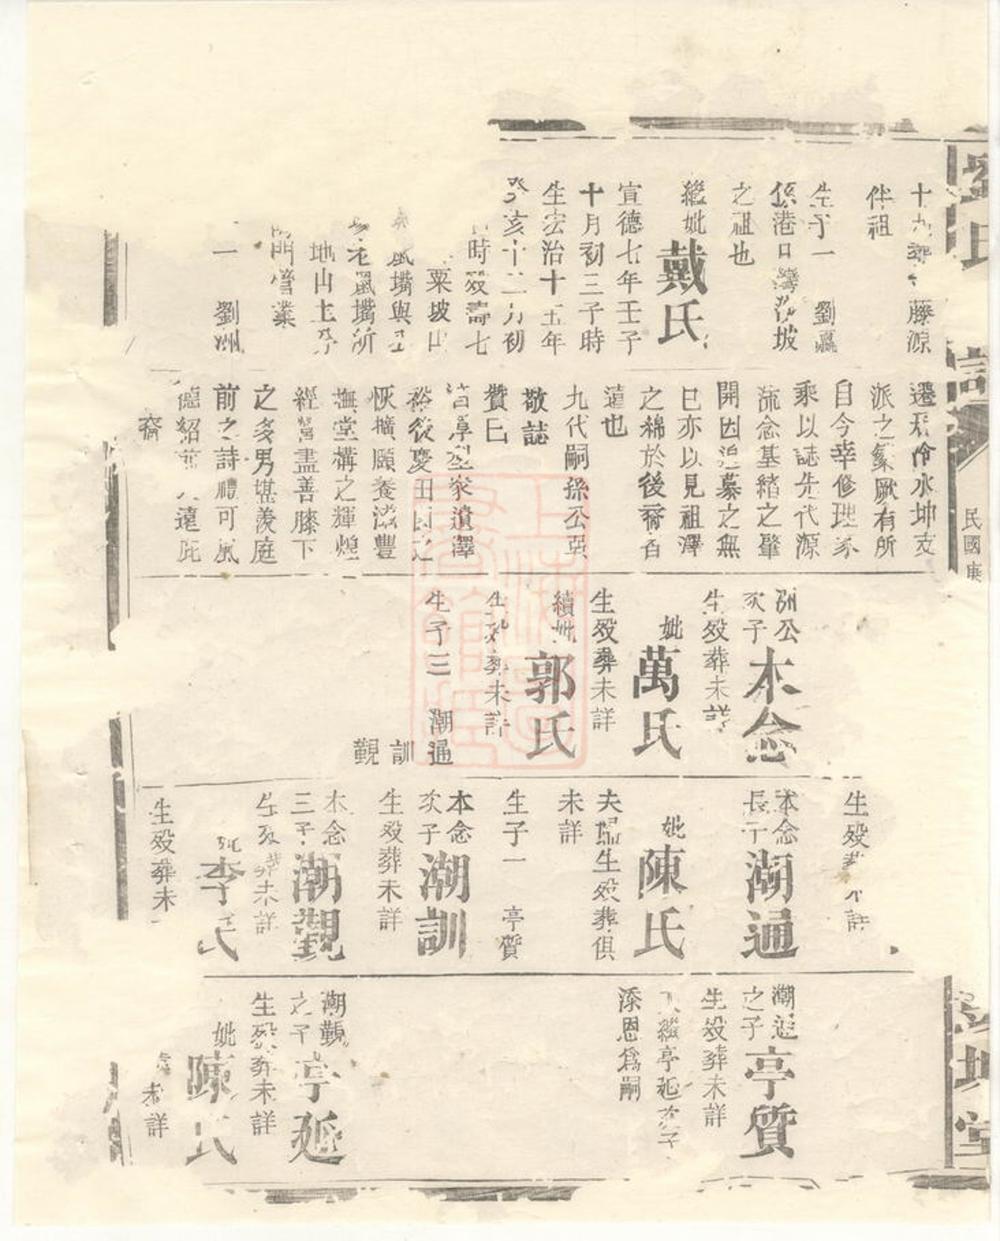 劉氏
民國庚
堂
藤源
伴祖
生子一 劉瀛
係港口灣 坡
之祖也
繼妣戴氏
宣德七年壬子
十月初三子時
生宏治十五年
癸亥十二月初
時殁壽七
粟坡山
風嘴與
老鼠嘴所
地山土
管業
一 劉洲
遷 冷水坤支
派之 厥有所
自今幸修理家
乘以誌先代源
流念基緒之肇
開因追慕之無
已亦以見祖澤
之綿於後裔者
遠也
九代嗣孫公
敬誌
贊曰
家遺澤
裕後慶田
恢擴頤養 豐
撫堂構之輝煌
經營盡善膝下
之多男堪羨庭
前之詩禮可風
德紹 遠庇
裔
洲公
次子木念
生殁葬未詳
妣萬氏
生殁葬未詳
續妣郭氏
生殁葬未詳
生子三 潮通
訓
觀
生殁葬 詳
木念
長子潮通
妣陳氏
夫婦生殁葬俱
未詳
生子一 亭質
本念
次子潮訓
生殁葬未詳
木念
三子潮觀
生殁葬未詳
妣李氏
生殁葬未
潮通
之子亭質
生殁葬未詳
繼亭延次子
添恩爲嗣
潮觀
之子亭延
生殁葬未詳
妣陳氏
未詳